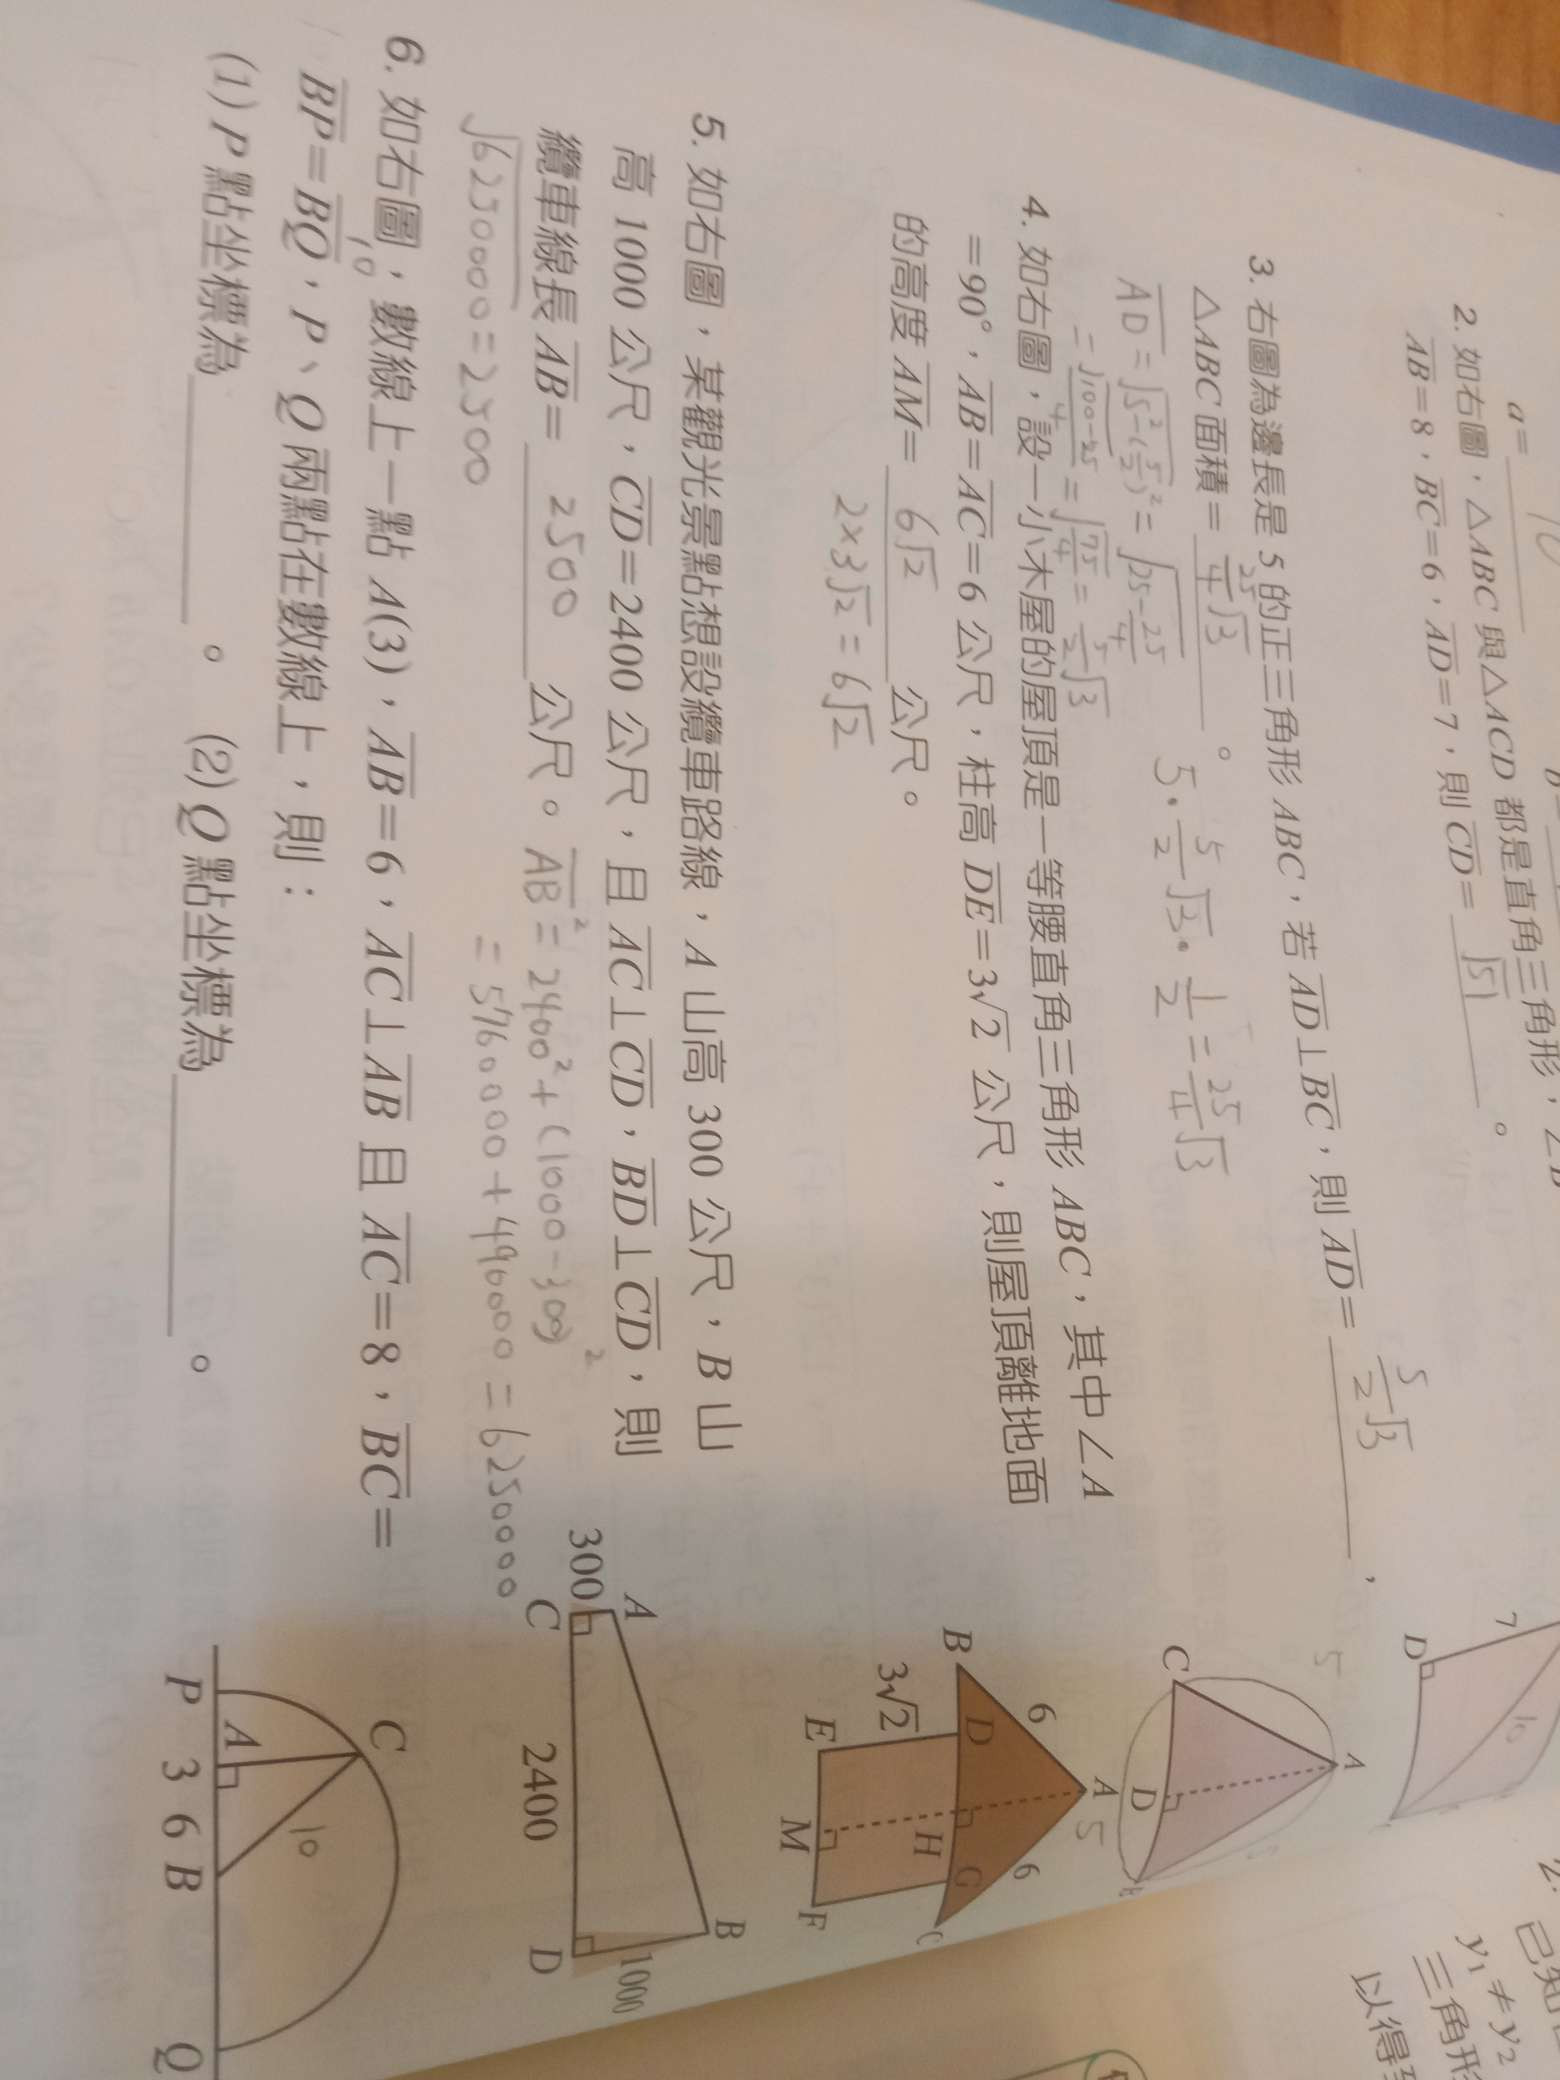 a= 10
2. 如右圖，△ABC 與△ACD 都是直角三角形，∠B
AB=8，BC=6，AD=7，則CD= √51 。
3. 右圖為邊長是 5 的正三角形 ABC，若 AD⊥BC，則 AD= 5/2√3 ，
△ABC 面積= 25/4√3 。
AD=√5²-(5/2)²=√25-25/4
=√100-25/4=√75/4=5/2√3
5·5/2√3·1/2=25/4√3
4. 如右圖，設一小木屋的屋頂是一等腰直角三角形 ABC，其中∠A
=90°，AB=AC=6 公尺，柱高 DE=3√2 公尺，則屋頂離地面
的高度 AM= 6√2 公尺。
2×3√2=6√2
5. 如右圖，某觀光景點想設纜車路線，A 山高 300 公尺，B 山
高 1000 公尺，CD=2400 公尺，且 AC⊥CD，BD⊥CD，則
纜車線長 AB= 2500 公尺。
AB²=2400²+(1000-300)²
=5760000+490000=6250000
√6250000=2500
6. 如右圖，數線上一點 A(3)，AB=6，AC⊥AB 且 AC=8，BC=
10
BP=BQ，P、Q 兩點在數線上，則：
(1) P 點坐標為 。 (2) Q 點坐標為 。
7
D
10
5
A
C
D
B
5
A
6
6
B
D
H
G
C
3√2
E
M
F
A
B
300
1000
C
2400
D
C
10
A
P 3 6 B Q
2. 已知
y₁≠y₂
三角形
以得到